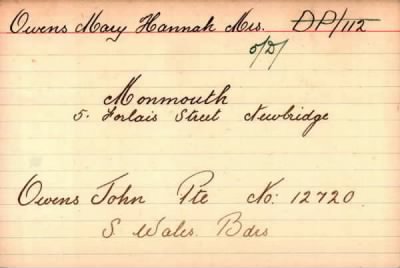 Owens Mary Hannah Mrs. DP/112
o/D/
Monmouth
5. Forlais Street Newbridge
Owens John Pte No: 12720
S Wales. Bdrs